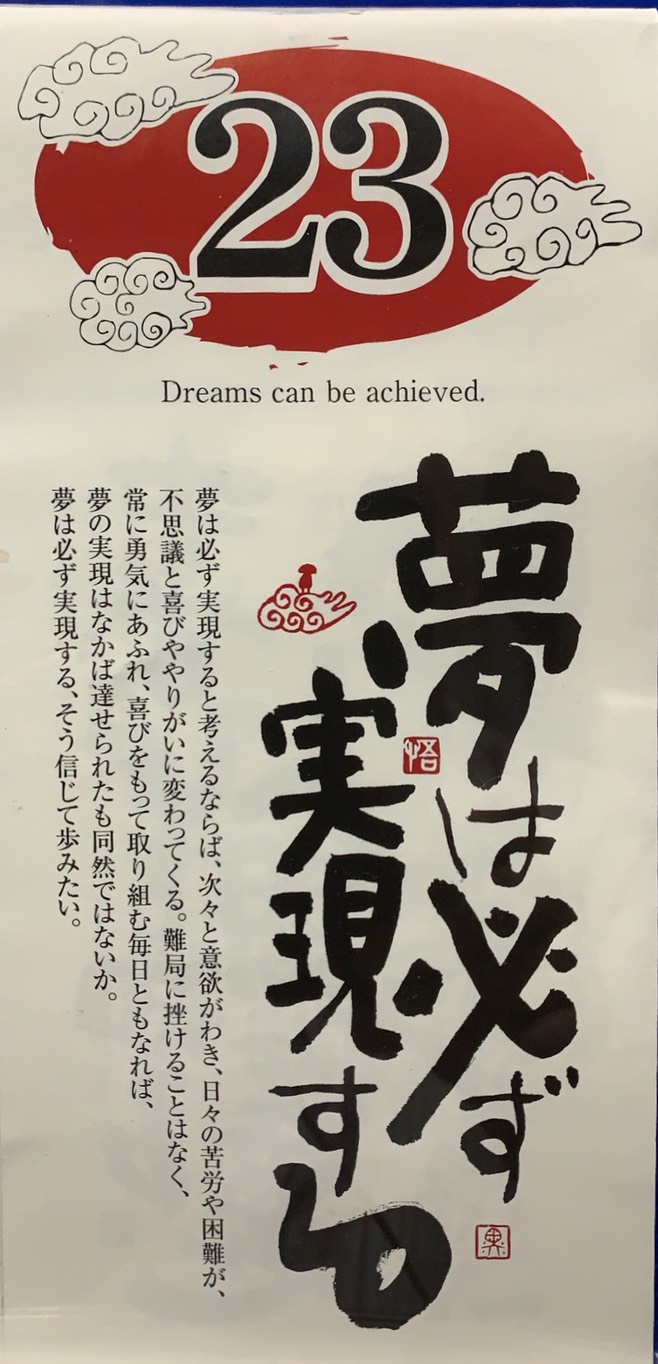 23
Dreams can be achieved.
夢は必ず
実現する
悟
夢は必ず実現すると考えるならば、次々と意欲がわき、日々の苦労や困難が、
不思議と喜びややりがいに変わってくる。難局に挫けることはなく、
常に勇気にあふれ、喜びをもって取り組む毎日ともなれば、
夢の実現はなかば達せられたも同然ではないか。
夢は必ず実現する、そう信じて歩みたい。